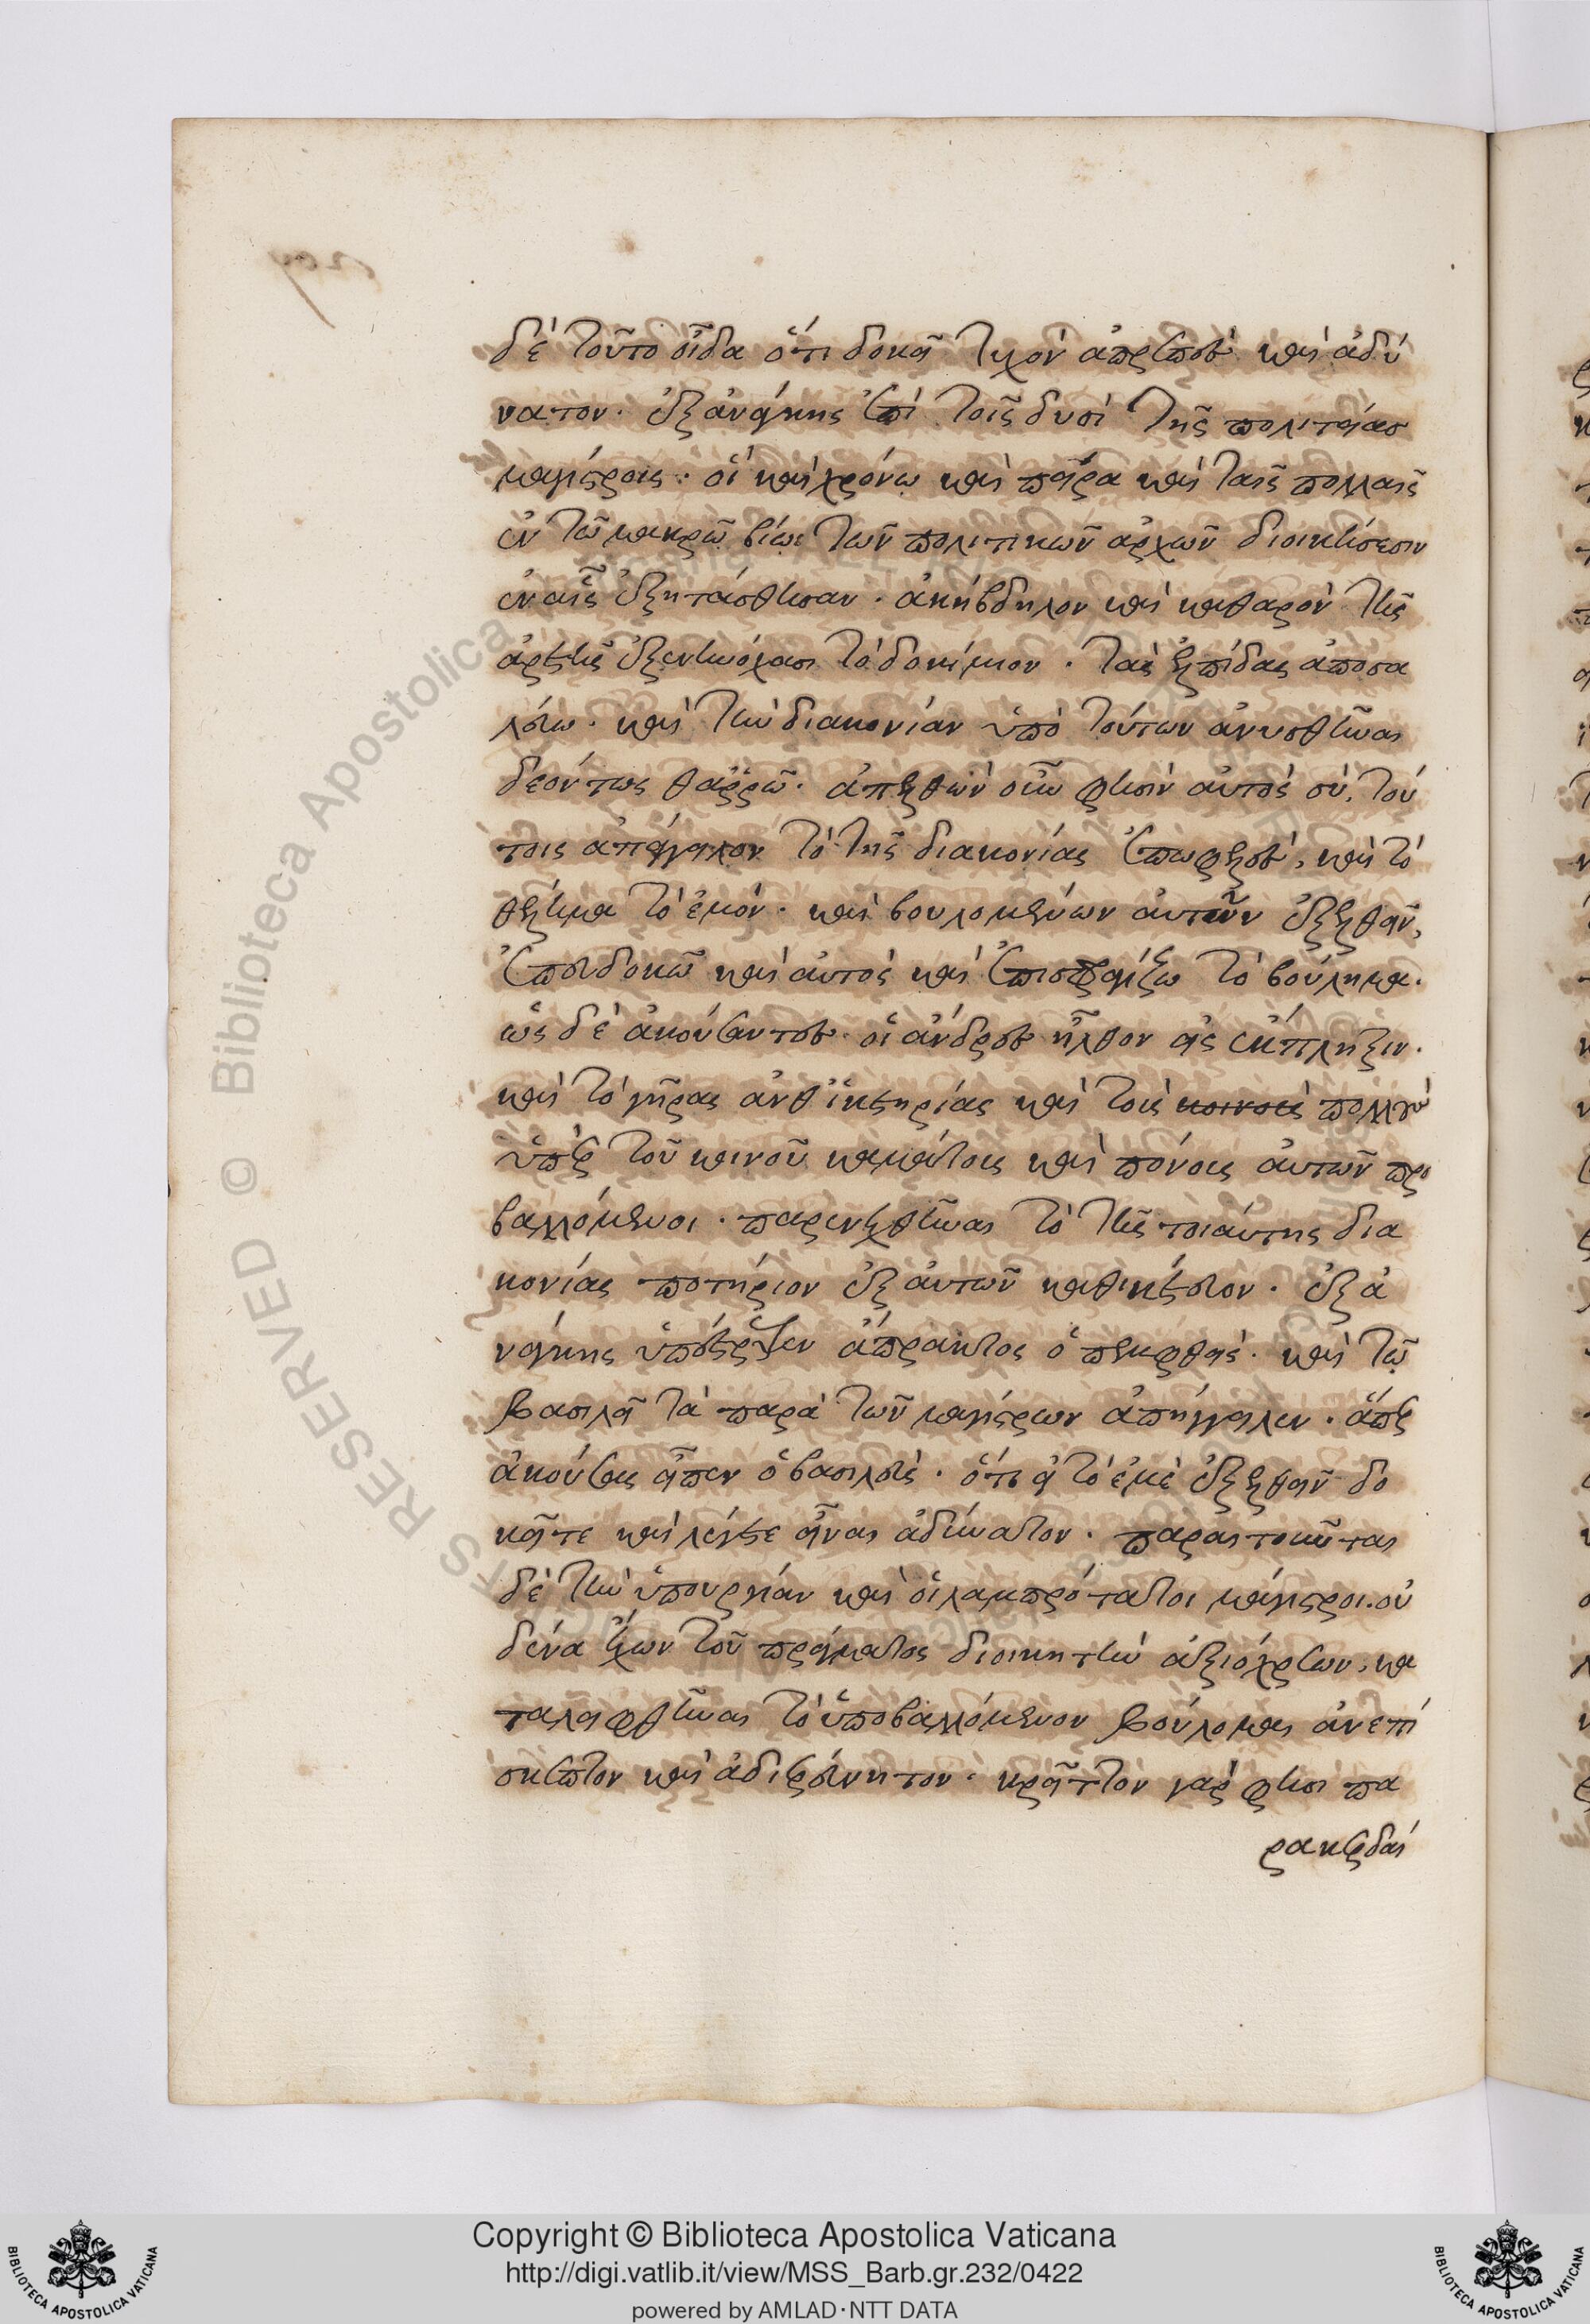 δὲ τοῦτο οἶδα ὅτι δοκεῖ τυχὸν ἀπρεπὲς καὶ ἀδύ
νατον. ἐξ ἀνάγκης ἐπὶ τοῖς δυσὶ τῆς πολιτείας
μαγίστροις. οἳ καὶ χρόνω καὶ πείρα καὶ ταῖς πολλαῖς
ἐν τῶ μακρῶ βίω τῶν πολιτικῶν ἀρχῶν διοικήσεσιν
ἐν αἷς ἐξητάσθησαν. ἀκίβδηλον καὶ καθαρὸν τῆς
ἀρετῆς ἐξενηνόχασι τὸ δοκίμιον. τὰς ἐλπίδας ἀποσα
λεύω. καὶ τὴν διακονίαν ὑπὸ τούτων ἀνυσθῆναι
δεόντως θαῤῥῶ. ἀπελθὼν οὖν φησὶν αὐτὸς σὺ, τού
τοις ἀπάγγειλον τὸ τῆς διακονίας ἐπωφελὲς, καὶ τὸ
θέλημα τὸ ἐμόν. καὶ βουλομένων αὐτῶν ἐξελθεῖν,
ἐπευδοκῶ καὶ αὐτὸς καὶ ἐπισφραγίζω τὸ βούλημα.
ὡς δὲ ἀκούσαντες οἱ ἄνδρες ἦλθον εἰς ἔκπληξιν.
καὶ τὸ γῆρας ἀνθ ἱκετηρίας καὶ τοῖς κοινοῖς πολλοῖς
ὑπὲρ τοῦ κοινοῦ καμάτοις καὶ πόνοις αὐτῶν προ
βαλλόμενοι. παρενεχθῆναι τὸ τῆς τοιαύτης δια
κονίας ποτήριον ἐξ αὐτῶν καθικέτευον. ἐξ ἀ
νάγκης ὑπέστρεψεν ἄπρακτος ὁ πεμφθεὶς. καὶ τῶ
βασιλεῖ τὰ παρὰ τῶν μαγίστρων ἀπήγγειλεν. ἅπερ
ἀκούσας εἶπεν ὁ βασιλεὺς. ὅτι εἰ τὸ ἐμὲ ἐξελθεῖν δο
κεῖτε καὶ λέγετε εἶναι ἀδύνατον. παραιτοῦνται
δὲ τὴν ὑπουργίαν καὶ οἱ λαμπρότατοι μάγιστροι. οὐ
δένα ἔχων τοῦ πράγματος διοικητὴν ἀξιόχρεων, κα
ταλειφθῆναι τὸ ὑποβαλλόμενον βούλομαι ἀνεπί
σκεπτον καὶ ἀδιερεύνητον. κρεῖττον γάρ φησι πα
ρακερδαί